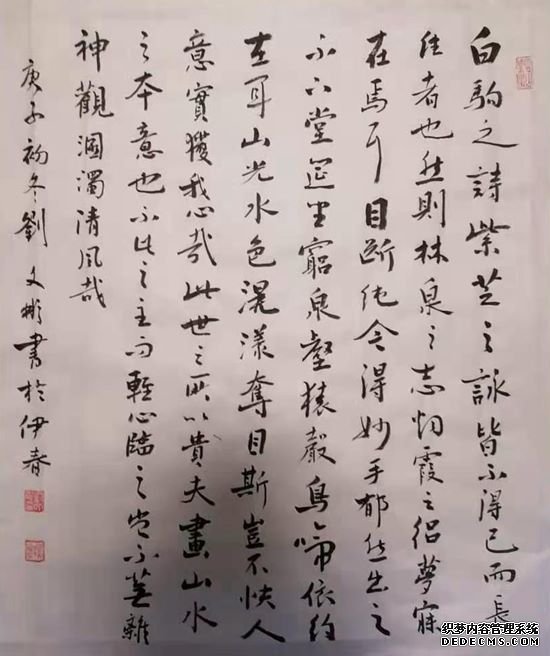 白駒之詩紫芝之詠皆不得已而長
往者也然則林泉之志烟霞之侶夢寐
在焉耳目斷絶今得妙手郁然出之
不下堂筵坐窮泉壑猿聲鳥啼依約
在耳山光水色滉漾奪目斯豈不快人
意實獲我心哉此世之所以貴夫畫山水
之本意也不此之主而輕心臨之豈不蕪雜
神觀溷濁清风哉
庚子初冬劉文彬書於伊春
织梦内容管理系统
DEDECMS.COM